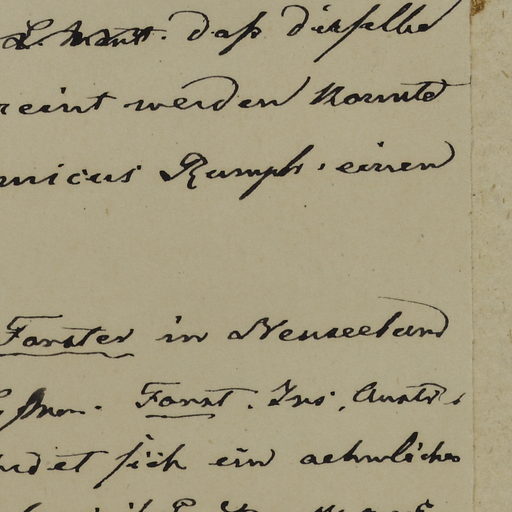 L. Mant. daß dieselbe
reint werden konnte
micus Rumph. einen
Forster in Neuseeland
Forst. Ins. Austr.
det sich ein aehnliches